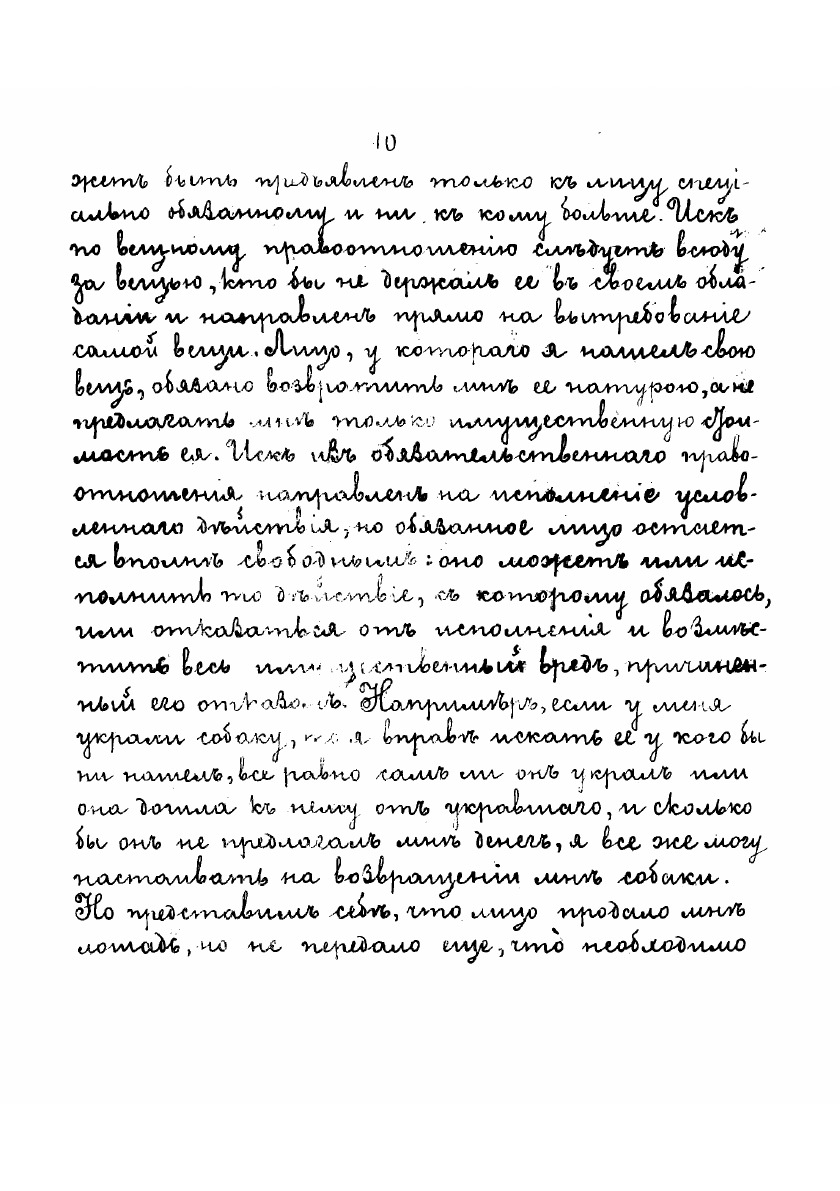 10
жетъ быть предъявленъ только къ лицу спеці-
ально обязанному и ни къ кому больше. Искъ
по вещному правоотношенію слѣдуетъ всюду
за вещью, кто бы не держалъ ее въ своемъ обла-
даніи и направленъ прямо на вытребованіе
самой вещи. Лицо, у котораго я нашелъ свою
вещь, обязано возвратить мнѣ ее натурою, а не
предлагать мнѣ только имущественную стои-
мость ея. Искъ изъ обязательственнаго право-
отношенія направленъ на исполненіе услов-
леннаго дѣйствія, но обязанное лицо остает-
ся вполнѣ свободнымъ: оно можетъ или ис-
полнить то дѣйствіе, къ которому обязалось,
или отказаться отъ исполненія и возмѣс-
тить весь имущественный вредъ, причинен-
ный его отказомъ. Напримѣръ, если у меня
украли собаку, то я вправѣ искать ее у кого бы
ни нашелъ, все равно самъ ли онъ укралъ или
она дошла къ нему отъ укравшаго, и сколько
бы онъ не предлагалъ мнѣ денегъ, я все же могу
настаивать на возвращеніи мнѣ собаки.
Но представимъ себѣ, что лицо продало мнѣ
лошадь, но не передало еще, что̀ необходимо